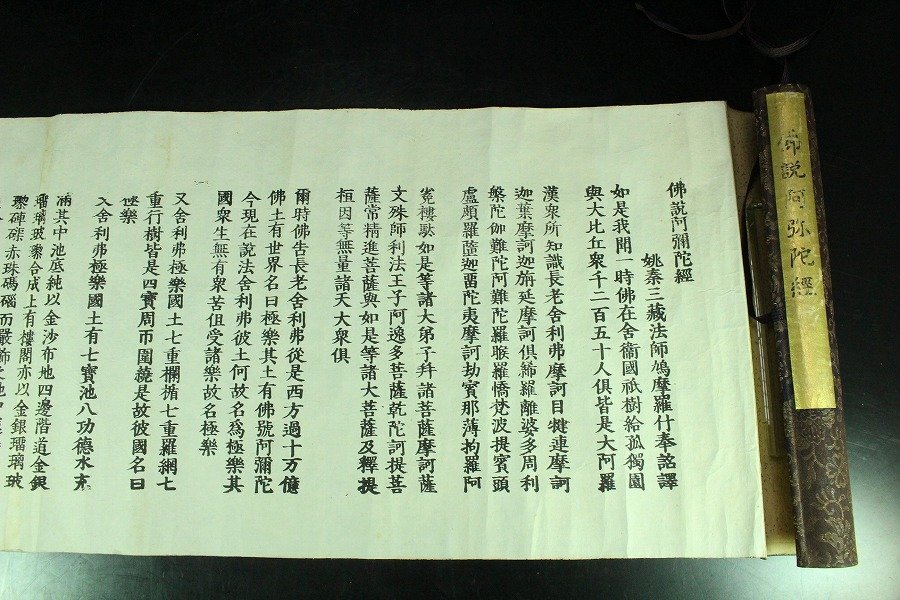 佛説阿弥陀經
佛說阿彌陀經
姚秦三藏法師鳩摩羅什奉詔譯
如是我聞一時佛在舍衞國祇樹給孤獨園
與大比丘衆千二百五十人俱皆是大阿羅
漢衆所知識長老舍利弗摩訶目犍連摩訶
迦葉摩訶迦旃延摩訶俱絺羅離婆多周利
槃陀伽難陀阿難陀羅睺羅憍梵波提賓頭
盧頗羅墮迦畱陀夷摩訶劫賓那薄拘羅阿
㝹樓馱如是等諸大弟子幷諸菩薩摩訶薩
文殊師利法王子阿逸多菩薩乾陀訶提菩
薩常精進菩薩與如是等諸大菩薩及釋提
桓因等無量諸天大衆俱
爾時佛告長老舍利弗從是西方過十万億
佛土有世界名曰極樂其土有佛號阿彌陀
今現在說法舍利弗彼土何故名爲極樂其
國衆生無有衆苦但受諸樂故名極樂
又舍利弗極樂國土七重欄楯七重羅網七
重行樹皆是四寶周帀圍繞是故彼國名曰
極樂
又舍利弗極樂國土有七寶池八功德水充
滿其中池底純以金沙布地四邊階道金銀
瑠璃玻瓈合成上有樓閣亦以金銀瑠璃玻
瓈硨磲赤珠碼碯而嚴飾之池中